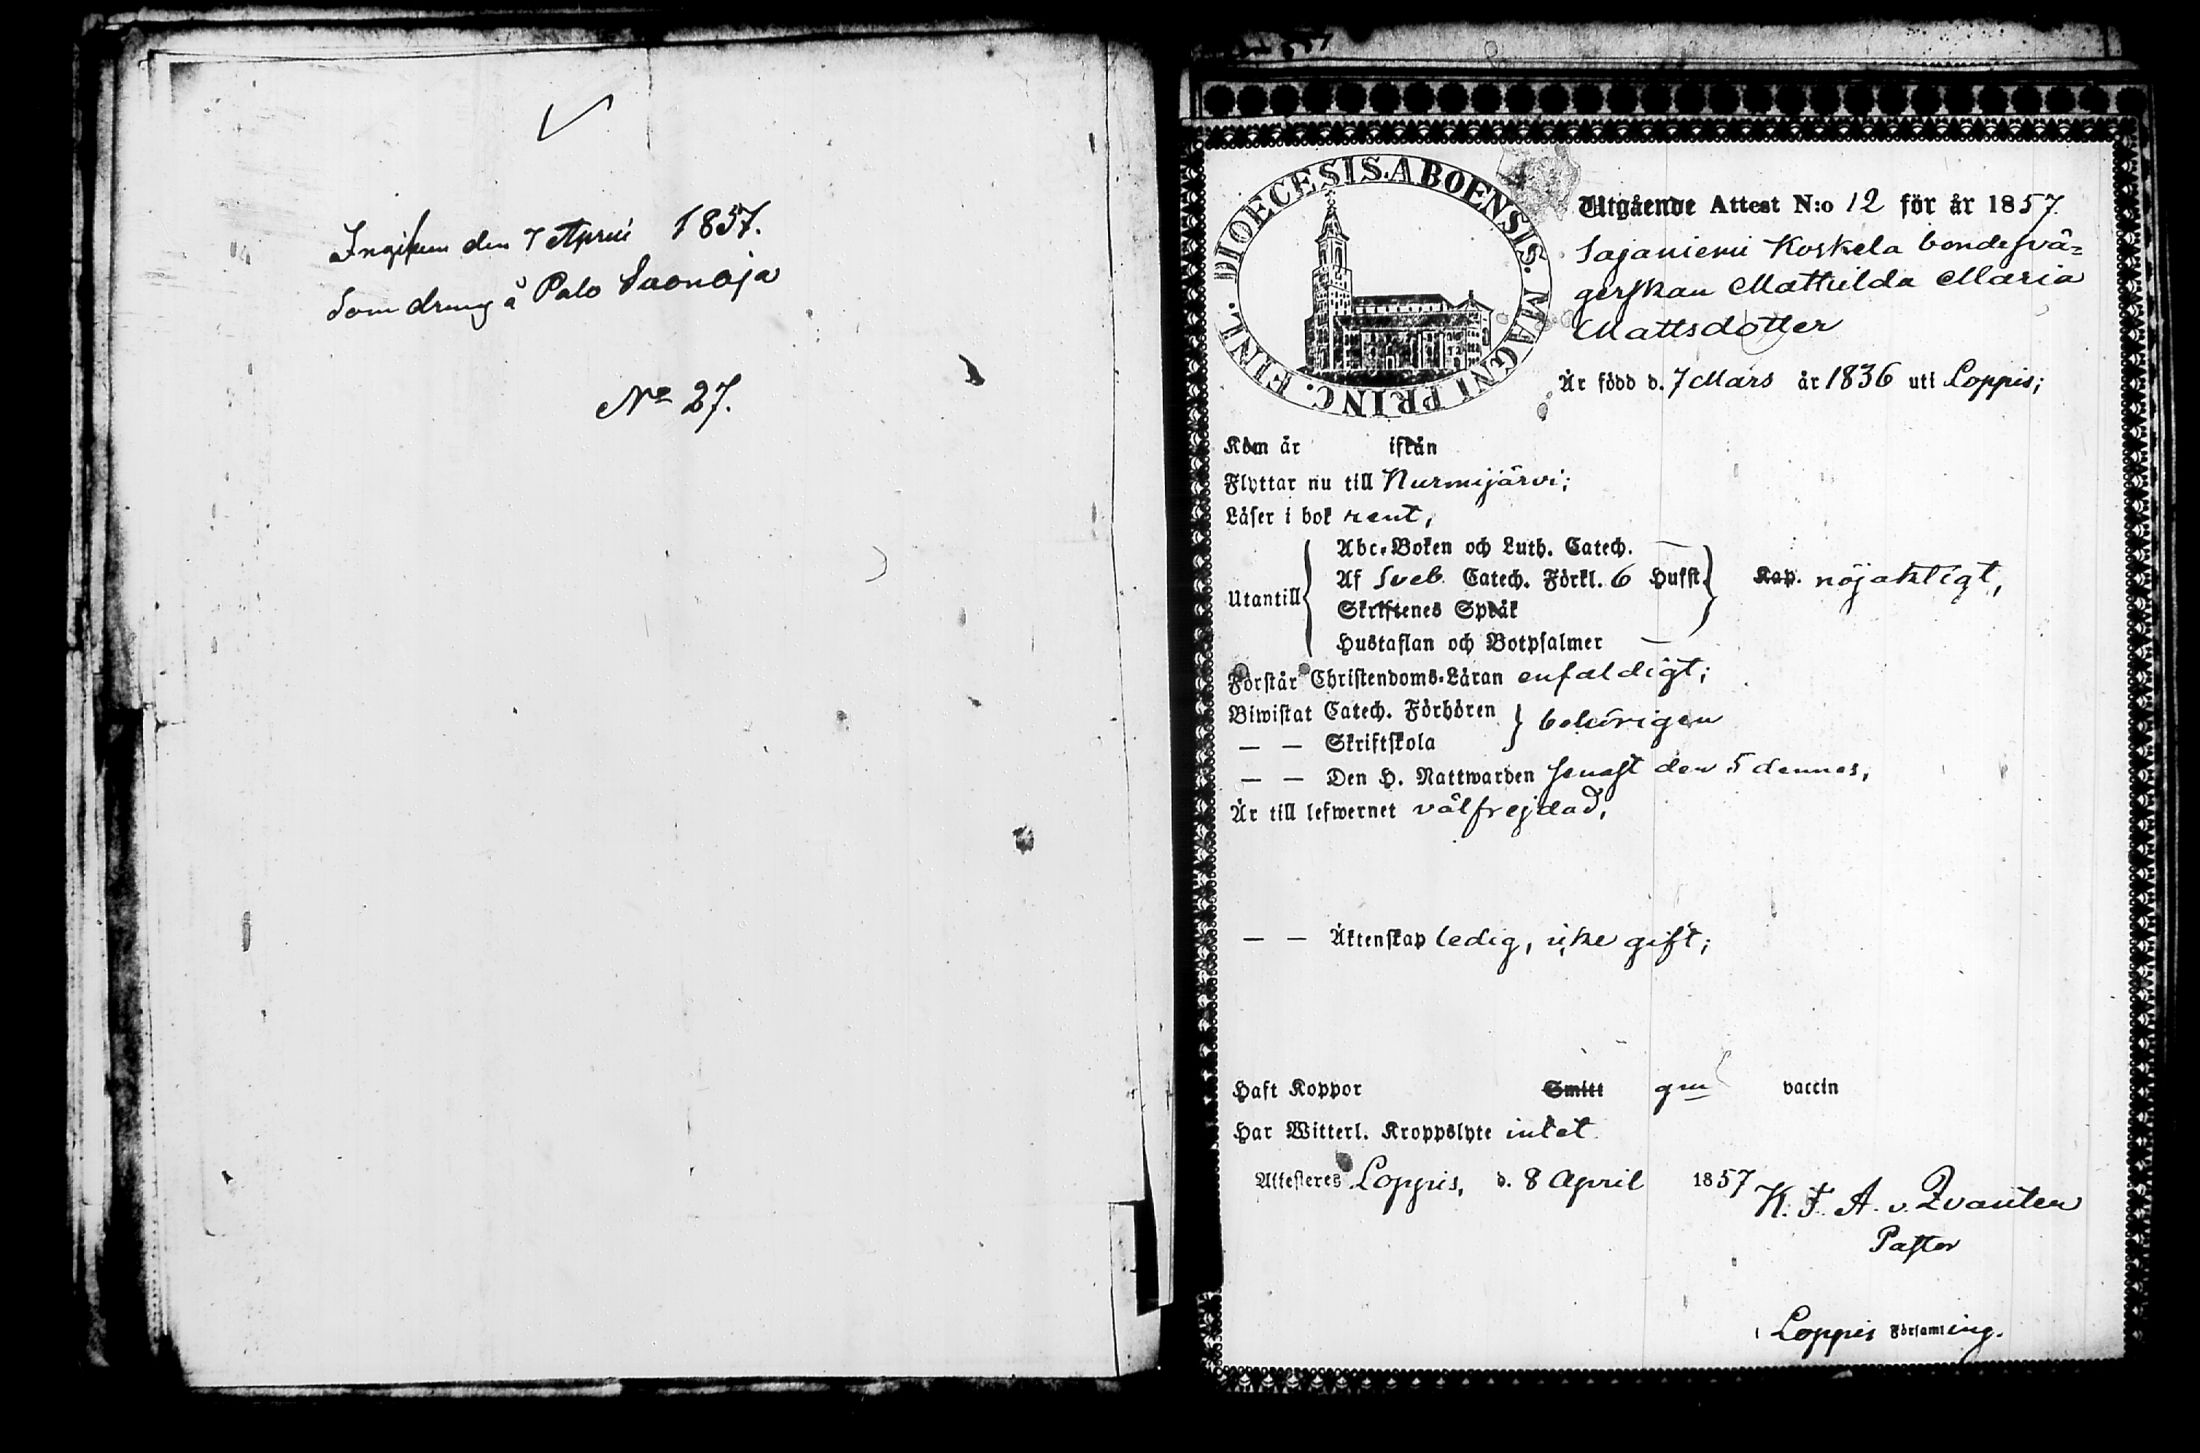 Ingifven den 7 April 1857.
Som dreng å Palo Saonoja
No 27.
DIOECESIS. ABOENSIS. MAGNI PRINC. FINL.
Utgående Attest N:o 12 för år 1857
Sajaniemi Koskela bondesvä-
gerskan Mathilda Maria
Mattsdotter
Är född d. 7 Mars år 1836 uti Loppis;
Kom år ifrån
Flyttar nu till Nurmijärvi;
Läser i bok rent,
Utantill
Abc-Boken och Luth. Catech. —
Af Sveb. Catech. Förkl. 6 Hufst. Kap. nöjaktligt,
Skriftenes Språk
Hustaflan och Botpsalmer —
Förstår Christendoms-Läran enfaldigt;
Biwistat Catech. Förhören
— — Skriftskola
behörigen
— — Den H. Nattwarden senast den 5 dennes,
Är till lefwernet välfrejdad,
— — Äktenskap ledig, icke gift;
Haft Koppor Smitt gm vaccin
Har Witterl. Kroppslyte intet
Attesteres Loppis, d. 8 April 1857
K. F. A. v. Zvanten
Pastor
i Loppis Församling.